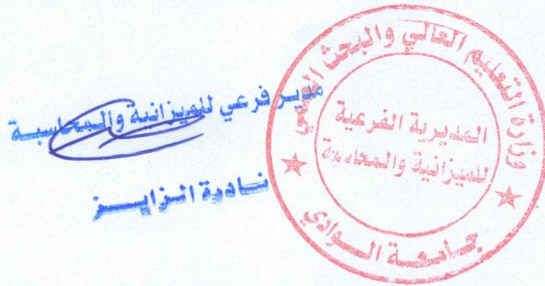 مدير فرعي للميزانية والمحاسبة
نادرة الزايز
وزارة التعليم العالي والبحث العلمي
المديرية الفرعية
للميزانية والمحاسبة
جامعة الوادي